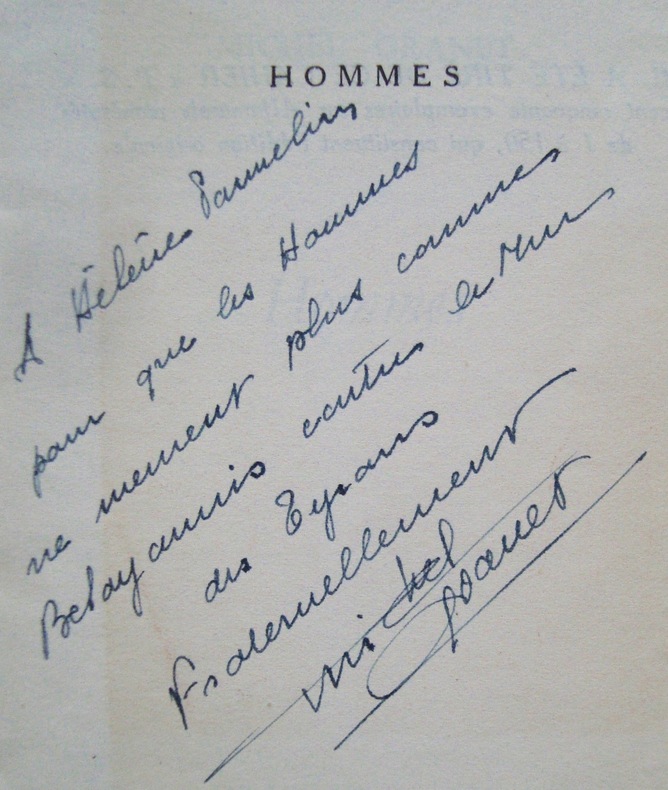 HOMMES
A Hélène Parmelin
pour que les Hommes
ne meurent plus comme
Beloyannis contre le Mur
des Tyrans
Fraternellement
Michel